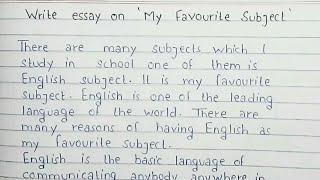 Write essay on 'My Favourite Subject'
There are many subjects which I
study in school one of them is
English subject. It is my favourite
subject. English is one of the leading
language of the world. There are
many reasons of having English as
my favourite subject.
English is the basic language of
communicating anybody anywhere in